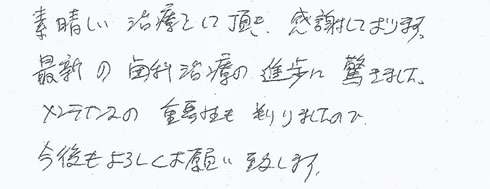 素晴しい治療をして頂き、感謝しております。
最新の歯科治療の進歩に驚きました。
メンテナンスの重要性も判りましたので
今後もよろしくお願い致します。